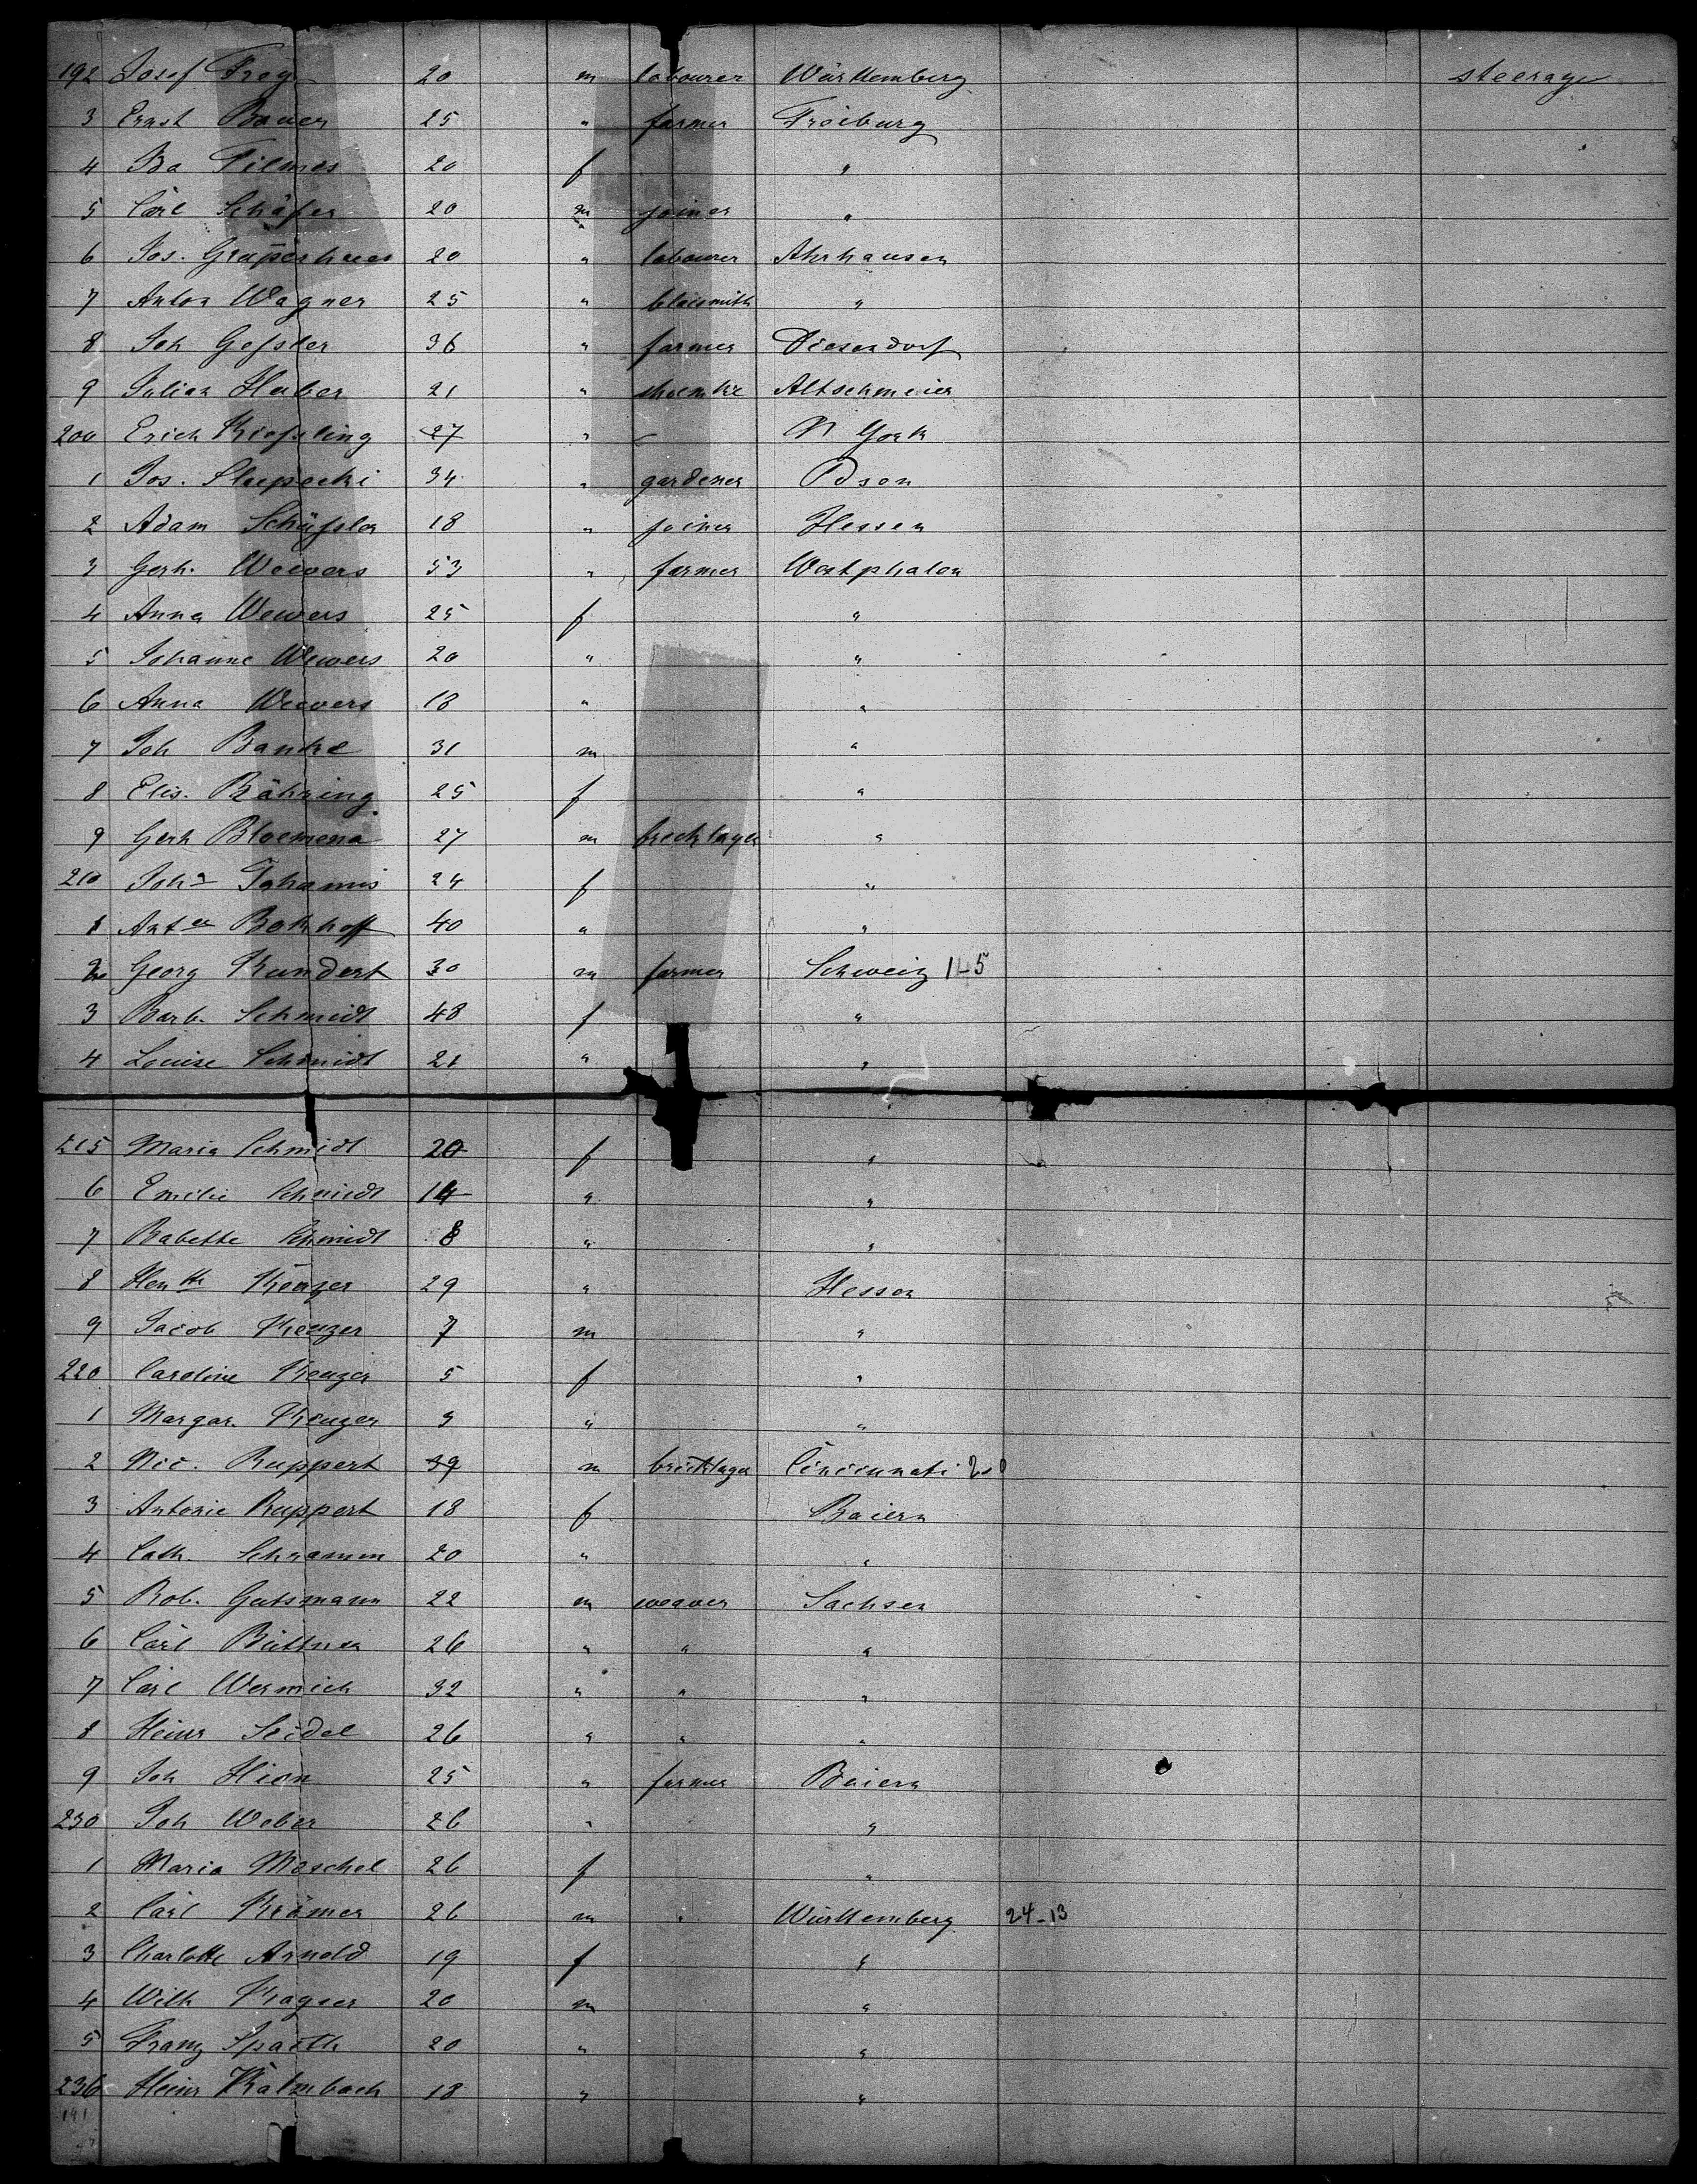 192 Josef Frey 20 m labourer Württemberg steerage
3 Ernst Bauer 25 " farmer Freiburg
4 Ba Filmes 20 f "
5 Carl Schäfer 20 m joiner "
6 Jos. 20 " labourer Ahrhausen
7 Anton Wagner 25 " blacsmith "
8 Joh Gessler 36 " farmer Diesendorf
9 Julian Huber 21 " Altschmeier
200 Erich Kiessling 27 " N York
1 Jos. Slupecki 34 " gardener Posen
2 Adam Schüssler 18 " joiner Hessen
3 Gerh. Wewers 53 " farmer Westphalen
4 Anna Wewers 25 f "
5 Johanne Wewers 20 " "
6 Anna Wewers 18 " "
7 Joh Banke 31 m "
8 Elis. Bähring 25 f "
9 Gerh Bloemena 27 m bricklayer "
210 Joha Johannis 24 f "
1 Bokhoff 40 " "
2 Georg Kundert 30 m farmer Schweiz 145
3 Barb. Schmidt 48 f "
4 Louise Schmidt 21 " "
215 Maria Schmidt 20 f "
6 Emilie Schmidt 14 " "
7 Babette Schmidt 8 " "
8 Hentte Krenzer 29 " Hessen
9 Jacob Krenzer 7 m "
220 Caroline Krenzer 5 f "
1 Margar. Krenzer 3 " "
2 Nic. Ruppert 39 m bricklayer Cincinnati
3 Antonie Ruppert 18 f Baiern
4 Cath. Schramm 20 " "
5 Rob. Gutsmann 22 m weaver Sachsen
6 Carl Büttner 26 " " "
7 Carl Wermich 32 " " "
8 Heinr Seidel 26 " " "
9 Joh Hien 25 " farmer Baiern
230 Joh Weber 26 " "
1 Maria Moschel 26 f "
2 Carl Krämer 26 m " Württemberg 24-13
3 Charlotte Arnold 19 f "
4 Wilh Kayser 20 m "
5 Franz Spaeth 20 " "
236 Heinr Kalmbach 18 " "
191